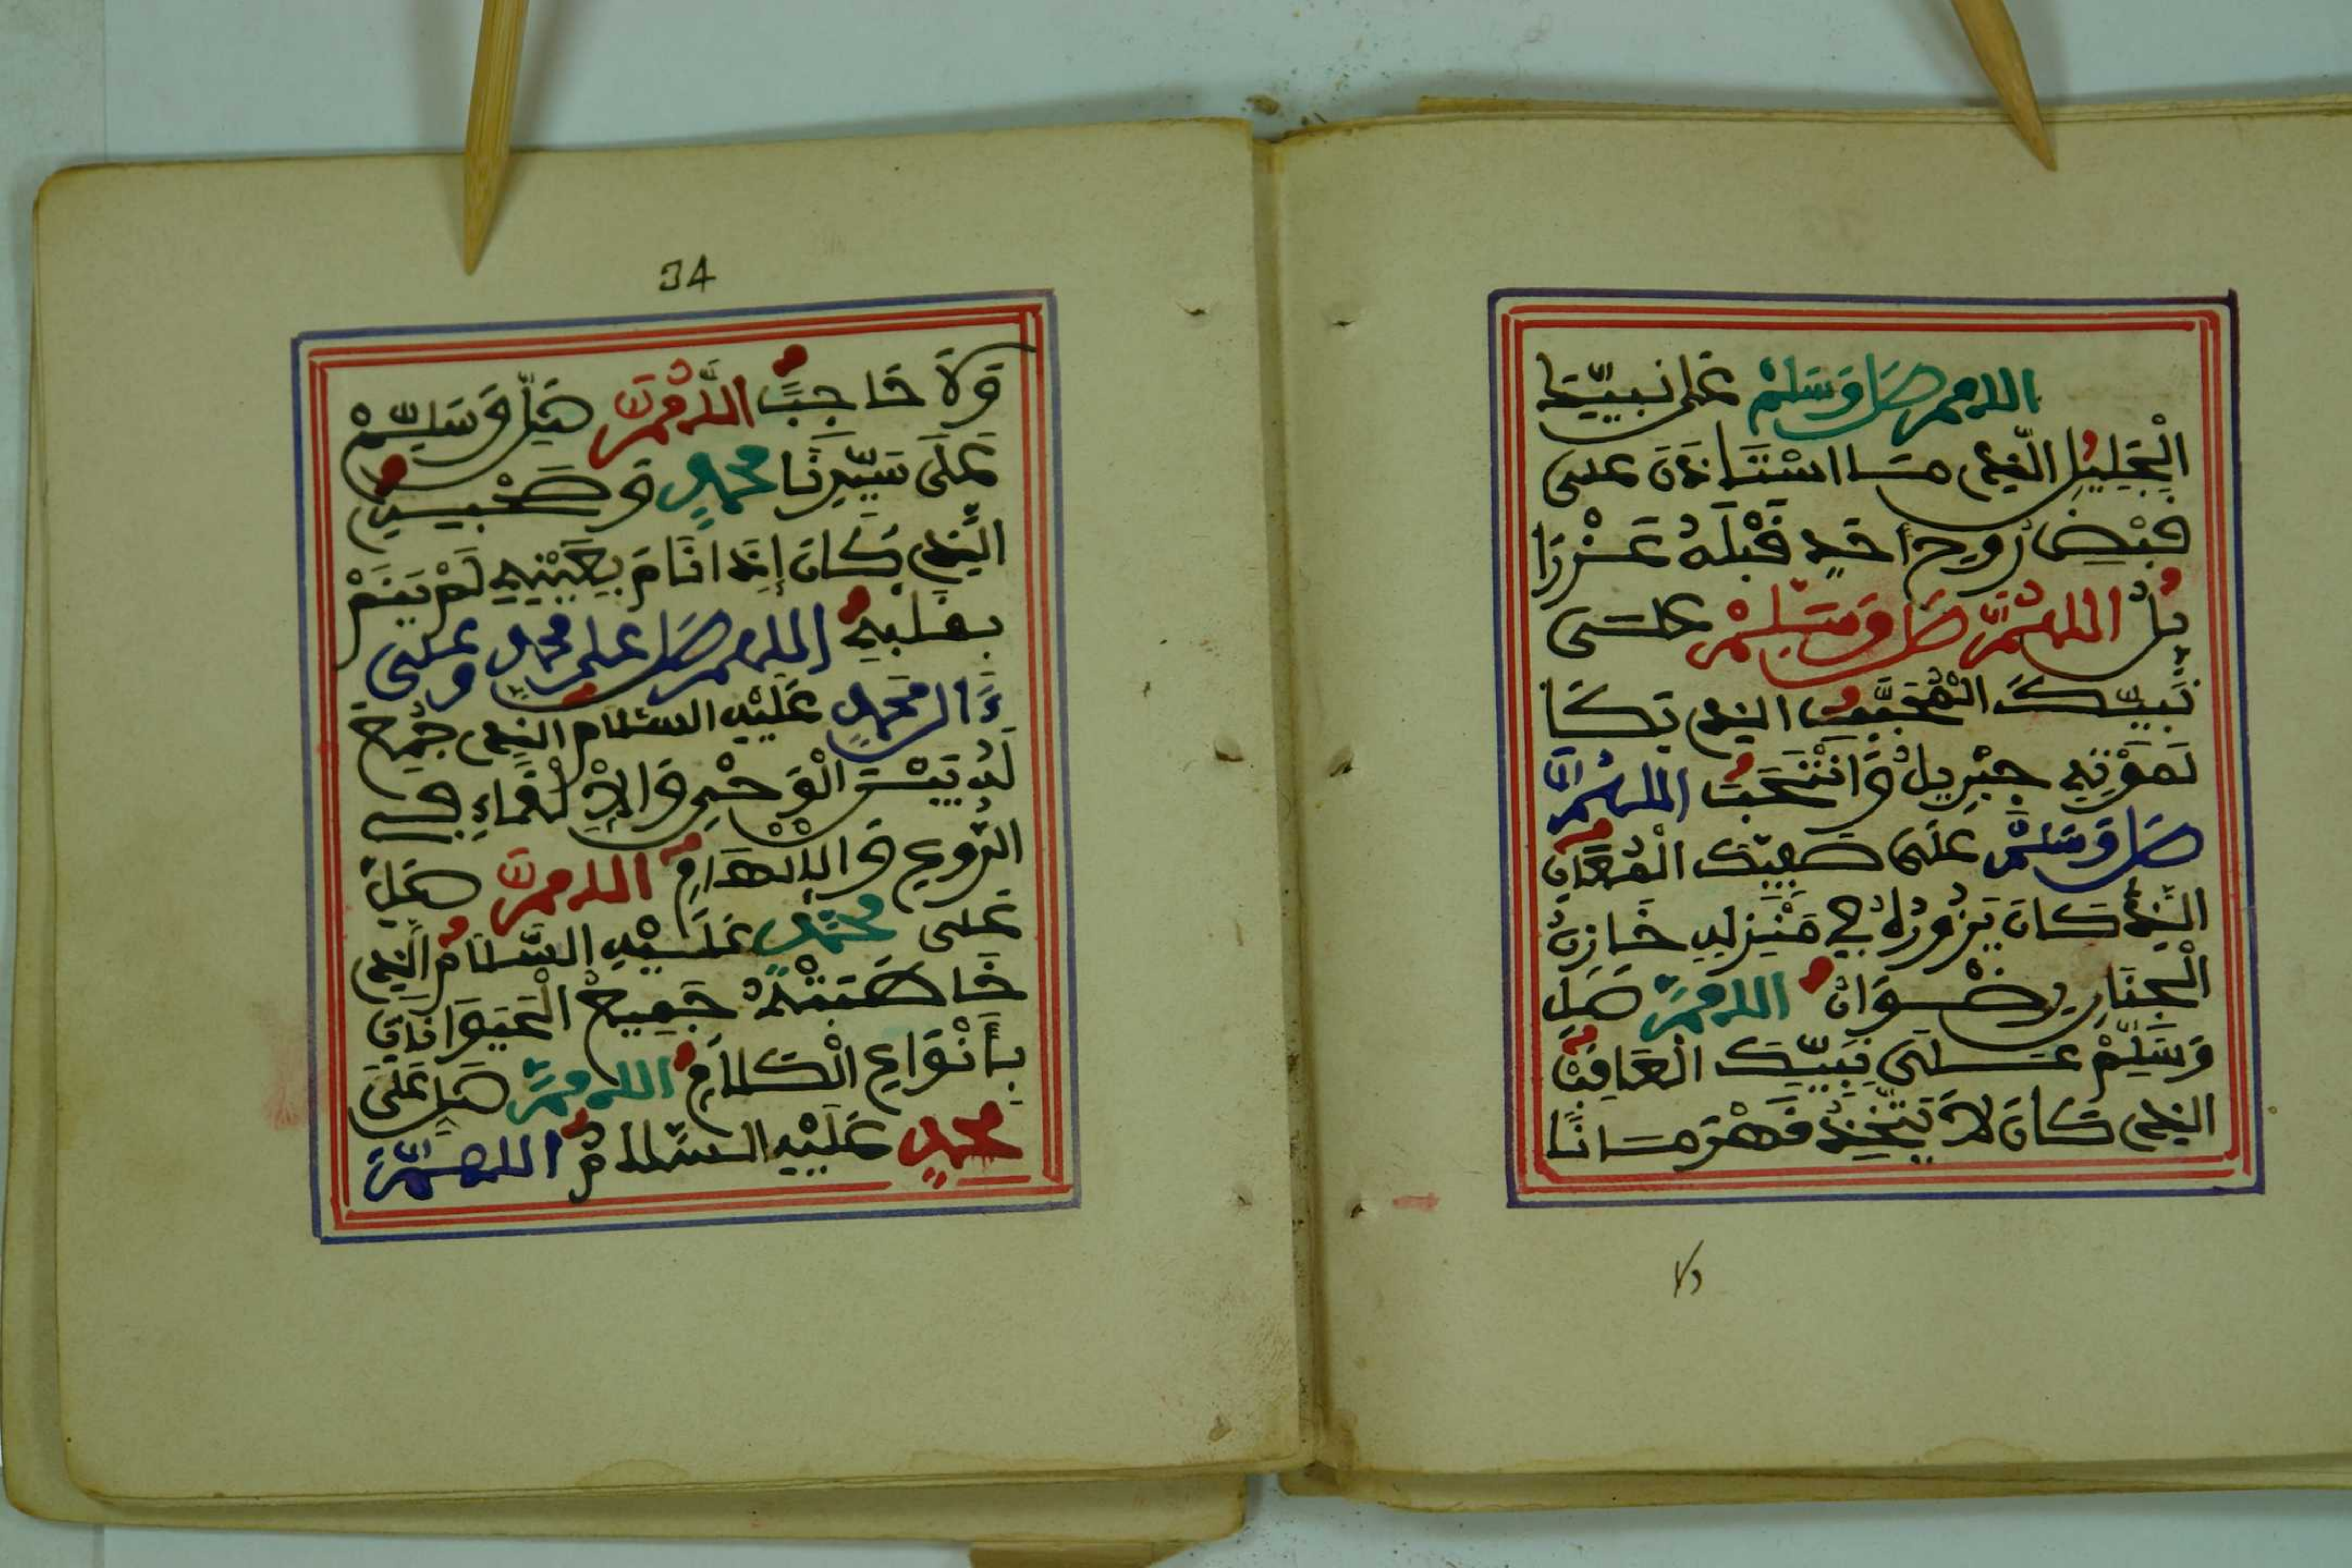 اللهم صل وسلم على نبينا
الْجَلِيلِ الَّذِي مَا اسْتَاذَنَ على
قبْضِ رُوحِ أَحَدٍ قَبْلَهُ عَزْرَا
ئلُ اللهُمَّ صَل وَسَلِّمْ عَلَى
نَبِيِّكَ الْمُحَبَّبِ الذِي بَكَا
لِمَوْتِهِ جِبْرِيلُ وَانْتَحَبَ اللهُمَّ
صَل وَسَلِّمْ عَلَى صَفِيِّكَ الْمُعَانِ
الَّذِي كَانَ يَزُورُهُ فِي مَنْزِلِهِ خَازِنُ
الْجِنَانِ رِضْوَانُ اللهمَّ صَلِّ
وَسَلِّمْ عَلَى نَبِيِّكَ الْعَاقِبِ
الذِي كَانَ لاَ يَتَّخِذُ قَهْرَمَانًا
ولا
34
وَلاَ حَاجِبًا اللَّهُمَّ صَلِّ وَسَلِّمْ
عَلَى سَيِّدِنَا مُحَمَّدٍ وَصَحْبِهِ
الَّذِي كَانَ إِذَا نَامَ بِعَيْنَيْهِ لَمْ يَنَمْ
بِقَلْبِهِ اللهم صَل على محمد وعلى
ءَالِ مُحَمَّدٍ عَلَيْهِ السَّلَامُ الذِي جُمِعَ
لَهُ بَيْنَ الْوَحْيِ وَالاِلْقَاءِ فِي
الرُّوعِ وَالاِلْهَامِ اللهمَّ صَلِّ
عَلَى مُحَمَّدٍ عَلَيْهِ السَّلَامُ الَّذِي
خَاطَبَتْهُ جَمِيعُ الْحَيَوَانَاتِ
بِأَنْوَاعِ الْكَلاَمِ اللهمَّ صَلِّ عَلَى
محمد عَلَيْهِ السَّلاَمُ اللهمَّ